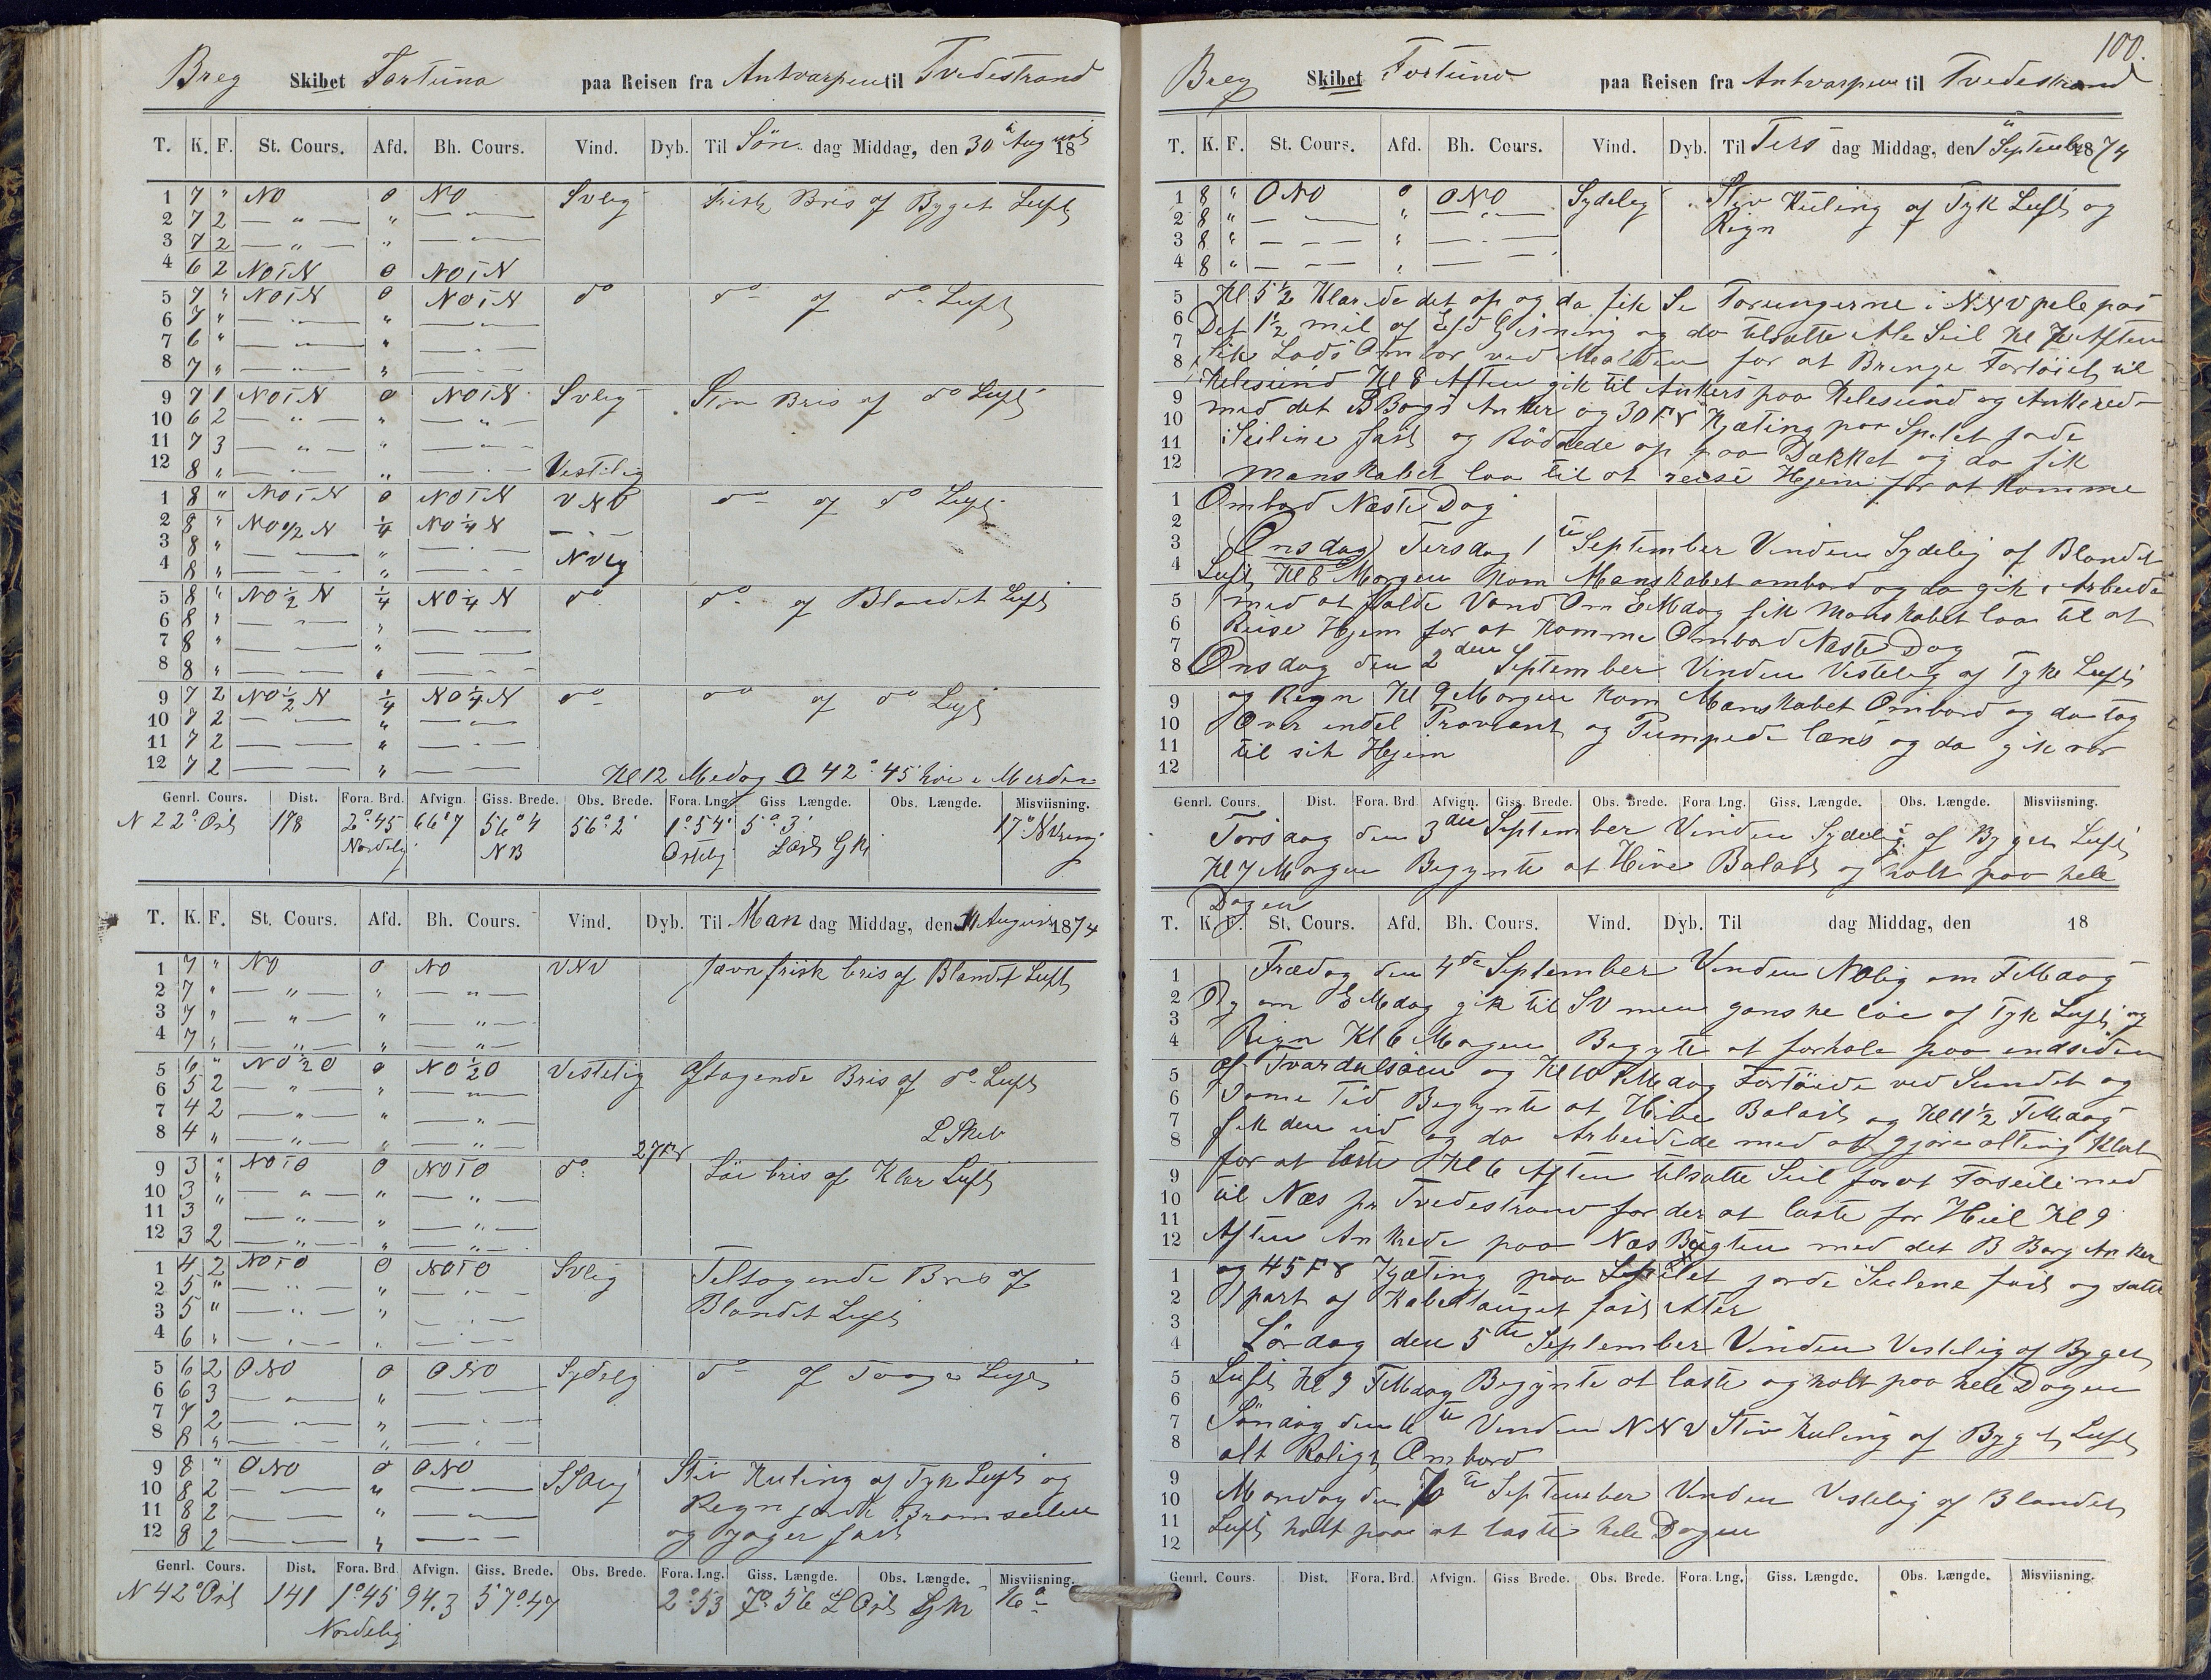 Breg Skibet Fortuna paa Reisen fra Antvarpen til Tvedestrand
T. K. F. St. Cours. Afd. Bh. Cours. Vind. Dyb. Til Søn dag Middag, den 30 August 18
1 7 " NO 0 NO SVlig Frisk Bris af Byget Luft
2 7 2 — " — " — " —
3 7 2 — " — " — " —
4 6 2 NOTN 0 NOTN
5 7 " NOTN 0 NOTN do do af do Luft
6 7 " — " — " — " —
7 6 " — " — " — " —
8 7 " — " — " — " —
9 7 1 NOTN 0 NOTN SVlig Stiv Bris af do Luft
10 6 2 — " — " — " —
11 7 3 — " — " — " —
12 8 " — " — " — " — Vestelig
1 8 " NOTN 0 NOTN VNV do af do Luft
2 8 " NO 1/2 N 1/4 NO 1/4 N
3 8 " — " — " — " —
4 8 " — " — " — " — NVlig
5 8 " NO 1/2 N 1/4 NO 1/4 N do do af Blandet Luft
6 8 " — " — " — " —
7 8 " — " — " — " —
8 8 " — " — " — " —
9 7 2 NO 1/2 N 1/4 NO 1/4 N do do af do Luft
10 7 2 — " — " — " —
11 7 2 — " — " — " —
12 7 2 — " — " — " —
Kl 12 Medag 42° 45'
Genrl. Cours. Dist. Fora. Brd. Afvign. Giss. Brede. Obs. Brede. Fora. Lng. Giss Længde. Obs. Længde. Misviisning.
N 22° Ost 178 2° 45 66' 7 56° 4 56° 2' 1° 54' 5° 3' 17°
Nordelig NB Ostelig
T. K. F. St. Cours. Afd. Bh. Cours. Vind. Dyb. Til Man dag Middag, den 31 August 1874
1 7 " NO 0 NO VNV Jævn frisk bris af Blandet Luft
2 7 " — " — " — " —
3 7 " — " — " — " —
4 7 " — " — " — " —
5 6 " NO 1/2 O 0 NO 1/2 O Vestelig Aftagende Bris af do Luft
6 5 2 — " — " — " —
7 4 2 — " — " — " —
8 4 " — " — " — " —
27 Fv
9 3 " NOTO 0 NOTO do Løi bris af Klar Luft
10 3 " — " — " — " —
11 3 " — " — " — " —
12 3 2 — " — " — " —
1 4 2 NOTO 0 NOTO SVlig Teltagende Bris af
2 5 " — " — " — " — Blandet Luft
3 5 " — " — " — " —
4 6 " — " — " — " —
5 6 2 ONO 0 ONO Sydelig do af Taage Luft
6 6 3 — " — " — " —
7 7 2 — " — " — " —
8 8 " — " — " — " —
9 8 " ONO 0 ONO Stiv Kuling af Tyk Luft og
10 8 2 — " — " — " — Regn Bramseilene
11 8 2 — " — " — " — og Jager fast
12 8 2 — " — " — " —
Genrl. Cours. Dist. Fora. Brd. Afvign. Giss. Brede. Obs. Brede. Fora. Lng. Giss. Længde. Obs. Længde. Misviisning.
N 42° Ost 141 1° 45 94.3 57° 47 2° 53 7° 56 L Ost 16°
Nordelig
100.
Breg Skibet Fortuna paa Reisen fra Antvarpen til Tvedestrand
T. K. F. St. Cours. Afd. Bh. Cours. Vind. Dyb. Til Ters dag Middag, den 1 September 1874
1 8 " ONO 0 ONO Sydelig Styv Kuling af Tyk Luft og
2 8 " — " — " — " — Regn
3 8 " — " — " — " —
4 8 " — " — " — " —
5 Kl 5 1/2 Klarede det op og da fik Se Torungerne i NNV pele paa
6 Det 1 1/2 mil af Gisning og da tilsatte Ale Seil Kl 7 Aften
7 8 fik Lods Ombor ved for at Bringe Fortøiet til
Kilesund Kl 8 Aften gik til Ankers paa Kilesund og Ankered
9 med det B Bogs Anker og 30 Fv Kjæting paa Spilet jorde
10 Seilene fast og Røddede op paa Dækket og da fik
11 12 Manskabet laav til at reise Hjem for at komme
1 Ombord Næste Dag
2 3 Onsdag Tersdag 1te September Vinden Sydelig af Blandet
4 Luft Kl 8 Morgen kom Manskabet ombord og da gik i Arbeide
5 med at falde Vand Om EMdag fik Manskabet laav til at
6 7 Reise Hjem for at komme Ombord Næste Dag
8 Onsdag den 2den September Vinden Vestelig af Tyk Luft
9 og Regn Kl 9 Morgen kom Manskabet Ombord og da tog
10 Over endel Proviant og Pumpede læns og da gik vær
11 12 til sit Hjem
Genrl. Cours. Dist. Fora. Brd. Afvign. Giss. Brede. Obs. Brede. Fora. Lng. Giss. Længde. Obs. Længde. Misviisning.
Torsdag den 3die September Vinden Sydelig af Byget Luft
Kl 7 Morgen Begynte at Hive Balast og holt paa hele
Dagen
T. K. F. St. Cours. Afd. Bh. Cours. Vind. Dyb. Til dag Middag, den 18
1 Fredag den 4de September Vinden NOlig om FMdag
2 3 Og om EMdag gik til SV men ganske løi af Tyk Luft og
4 Regn Kl 6 Morgen Begyte at forhale paa endsiden
5 af Tvardalsøen og Kl 10 FMdag Fortøide ved Sundet og
6 Same Tid Begynte at Hive Balast og Kl 11 1/2 FMdag
7 8 fik den ud og da Arbeidede med at gjøre alting Klart
9 for at laste Kl 6 Aften tilsatte Seil for at Forseile ned
10 til Næs pr Tvedestrand for der at laste for Hiel Kl 9
11 12 Aften Ankrede paa Næs Bugten med det B Borg Anker
1 og 45 Fv Kjæting paa Spilet jorde Seilene fast og satte
2 3 1 part af Kabeltauget fast etter
4 Lørdag den 5te September Vinden Vestelig af Byget
5 Luft Kl 9 FMdag Begynte at laste og holt paa hele Dagen
6 7 Søndag den 6te Vinden NNV Stiv Kuling af Byget Luft
8 alt Roligt Ombord
9 10 Mandag den 7te September Vinden Vestelig af Blandet
11 12 Luft holt paa at laste hele Dagen
Genrl. Cours. Dist. Fora. Brd. Afvign. Giss Brede. Obs. Brede. Fora. Lng. Giss. Længde. Obs. Længde. Misviisning.